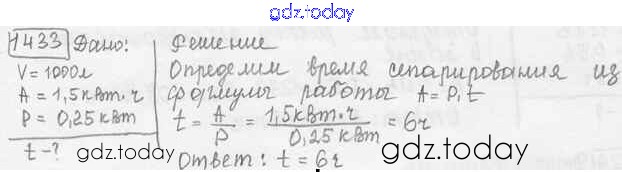 gdz.today
1433 Дано: Решение
V = 1000л Определим время сепарирования из
A = 1,5 кВт·ч формулы работы A = P,t
P = 0,25 кВт t = A/P = 1,5 кВт·ч/0,25 кВт = 6ч
t - ? Ответ: t = 6ч
gdz.today gdz.today